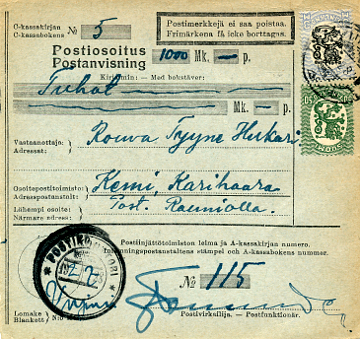 C-kassakirjan
C-kassabokens № 5
Postimerkkejä ei saa poistaa.
Frimärkena få icke borttagas.
Postiosoitus
Postanvisning 1000 Mk. — p.
Kirjaimin: — Med bokstäver:
Tuhat
Mk. — p.
Vastaanottaja:
Adressat:
Rouva Tyyne Heikari
Osoitepostitoimisto:
Adresspostanstalt:
Kemi, Karihaara
Lähempi osoite:
Närmare adress:
Post. Rauniolla.
Postiinjättötoimiston leima ja A-kassakirjan numero.
Inlämningspostanstaltens stämpel och A-kassabokens nummer.
№ 115
Lomake
Blankett
Postivirkailija. - Postfunktionär.